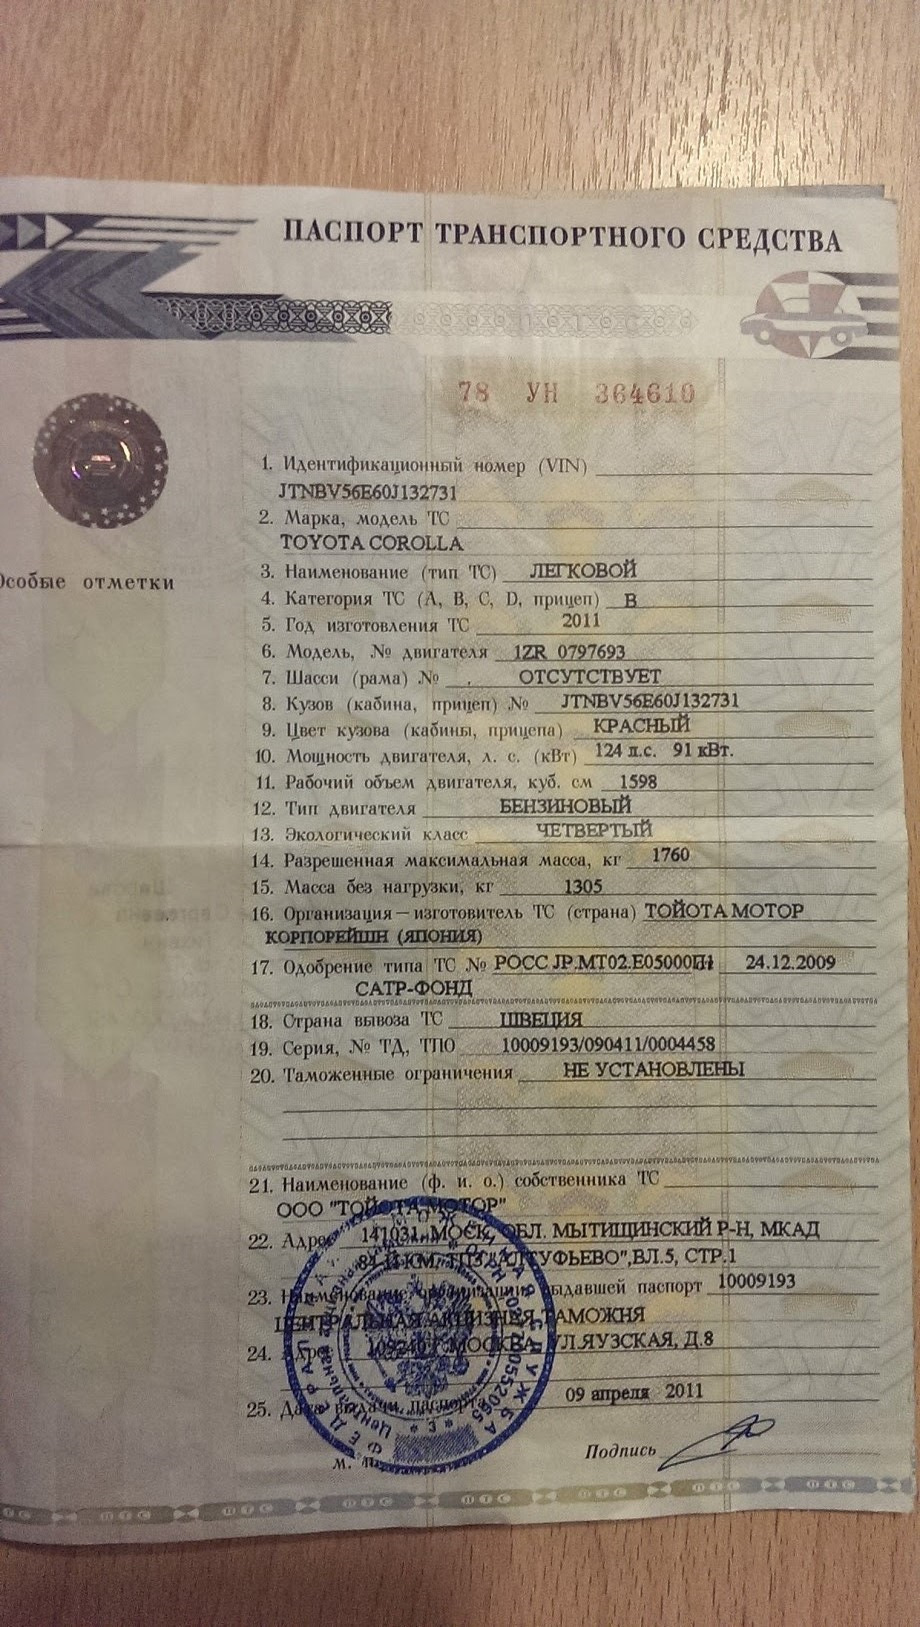 ПАСПОРТ ТРАНСПОРТНОГО СРЕДСТВА
78 УН 364610
Особые отметки
1. Идентификационный номер (VIN)
JTNBV56E60J132731
2. Марка, модель ТС
TOYOTA COROLLA
3. Наименование (тип ТС) ЛЕГКОВОЙ
4. Категория ТС (A, B, C, D, прицеп) В
5. Год изготовления ТС 2011
6. Модель, № двигателя 1ZR 0797693
7. Шасси (рама) № ОТСУТСТВУЕТ
8. Кузов (кабина, прицеп) № JTNBV56E60J132731
9. Цвет кузова (кабины, прицепа) КРАСНЫЙ
10. Мощность двигателя, л. с. (кВт) 124 л.с. 91 кВт.
11. Рабочий объем двигателя, куб. см 1598
12. Тип двигателя БЕНЗИНОВЫЙ
13. Экологический класс ЧЕТВЕРТЫЙ
14. Разрешенная максимальная масса, кг 1760
15. Масса без нагрузки, кг 1305
16. Организация – изготовитель ТС (страна) ТОЙОТА МОТОР
КОРПОРЕЙШН (ЯПОНИЯ)
17. Одобрение типа ТС № РОСС JP.MT02.E05000П1 24.12.2009
САТР-ФОНД
18. Страна вывоза ТС ШВЕЦИЯ
19. Серия, № ТД, ТПО 10009193/090411/0004458
20. Таможенные ограничения НЕ УСТАНОВЛЕНЫ
21. Наименование (ф. и. о.) собственника ТС
ООО "ТОЙОТА МОТОР"
22. Адрес 141031, МОСК. ОБЛ. МЫТИЩИНСКИЙ Р-Н, МКАД
84-Й КМ, ТПЗ "АЛТУФЬЕВО",ВЛ.5, СТР.1
23. Наименование организации, выдавшей паспорт 10009193
ЦЕНТРАЛЬНАЯ АКЦИЗНАЯ ТАМОЖНЯ
24. Адрес 109240 Г. МОСКВА УЛ.ЯУЗСКАЯ, Д.8
25. Дата выдачи паспорта 09 апреля 2011
М. П.
Подпись
ПТС ПТС ПТС ПТС ПТС ПТС